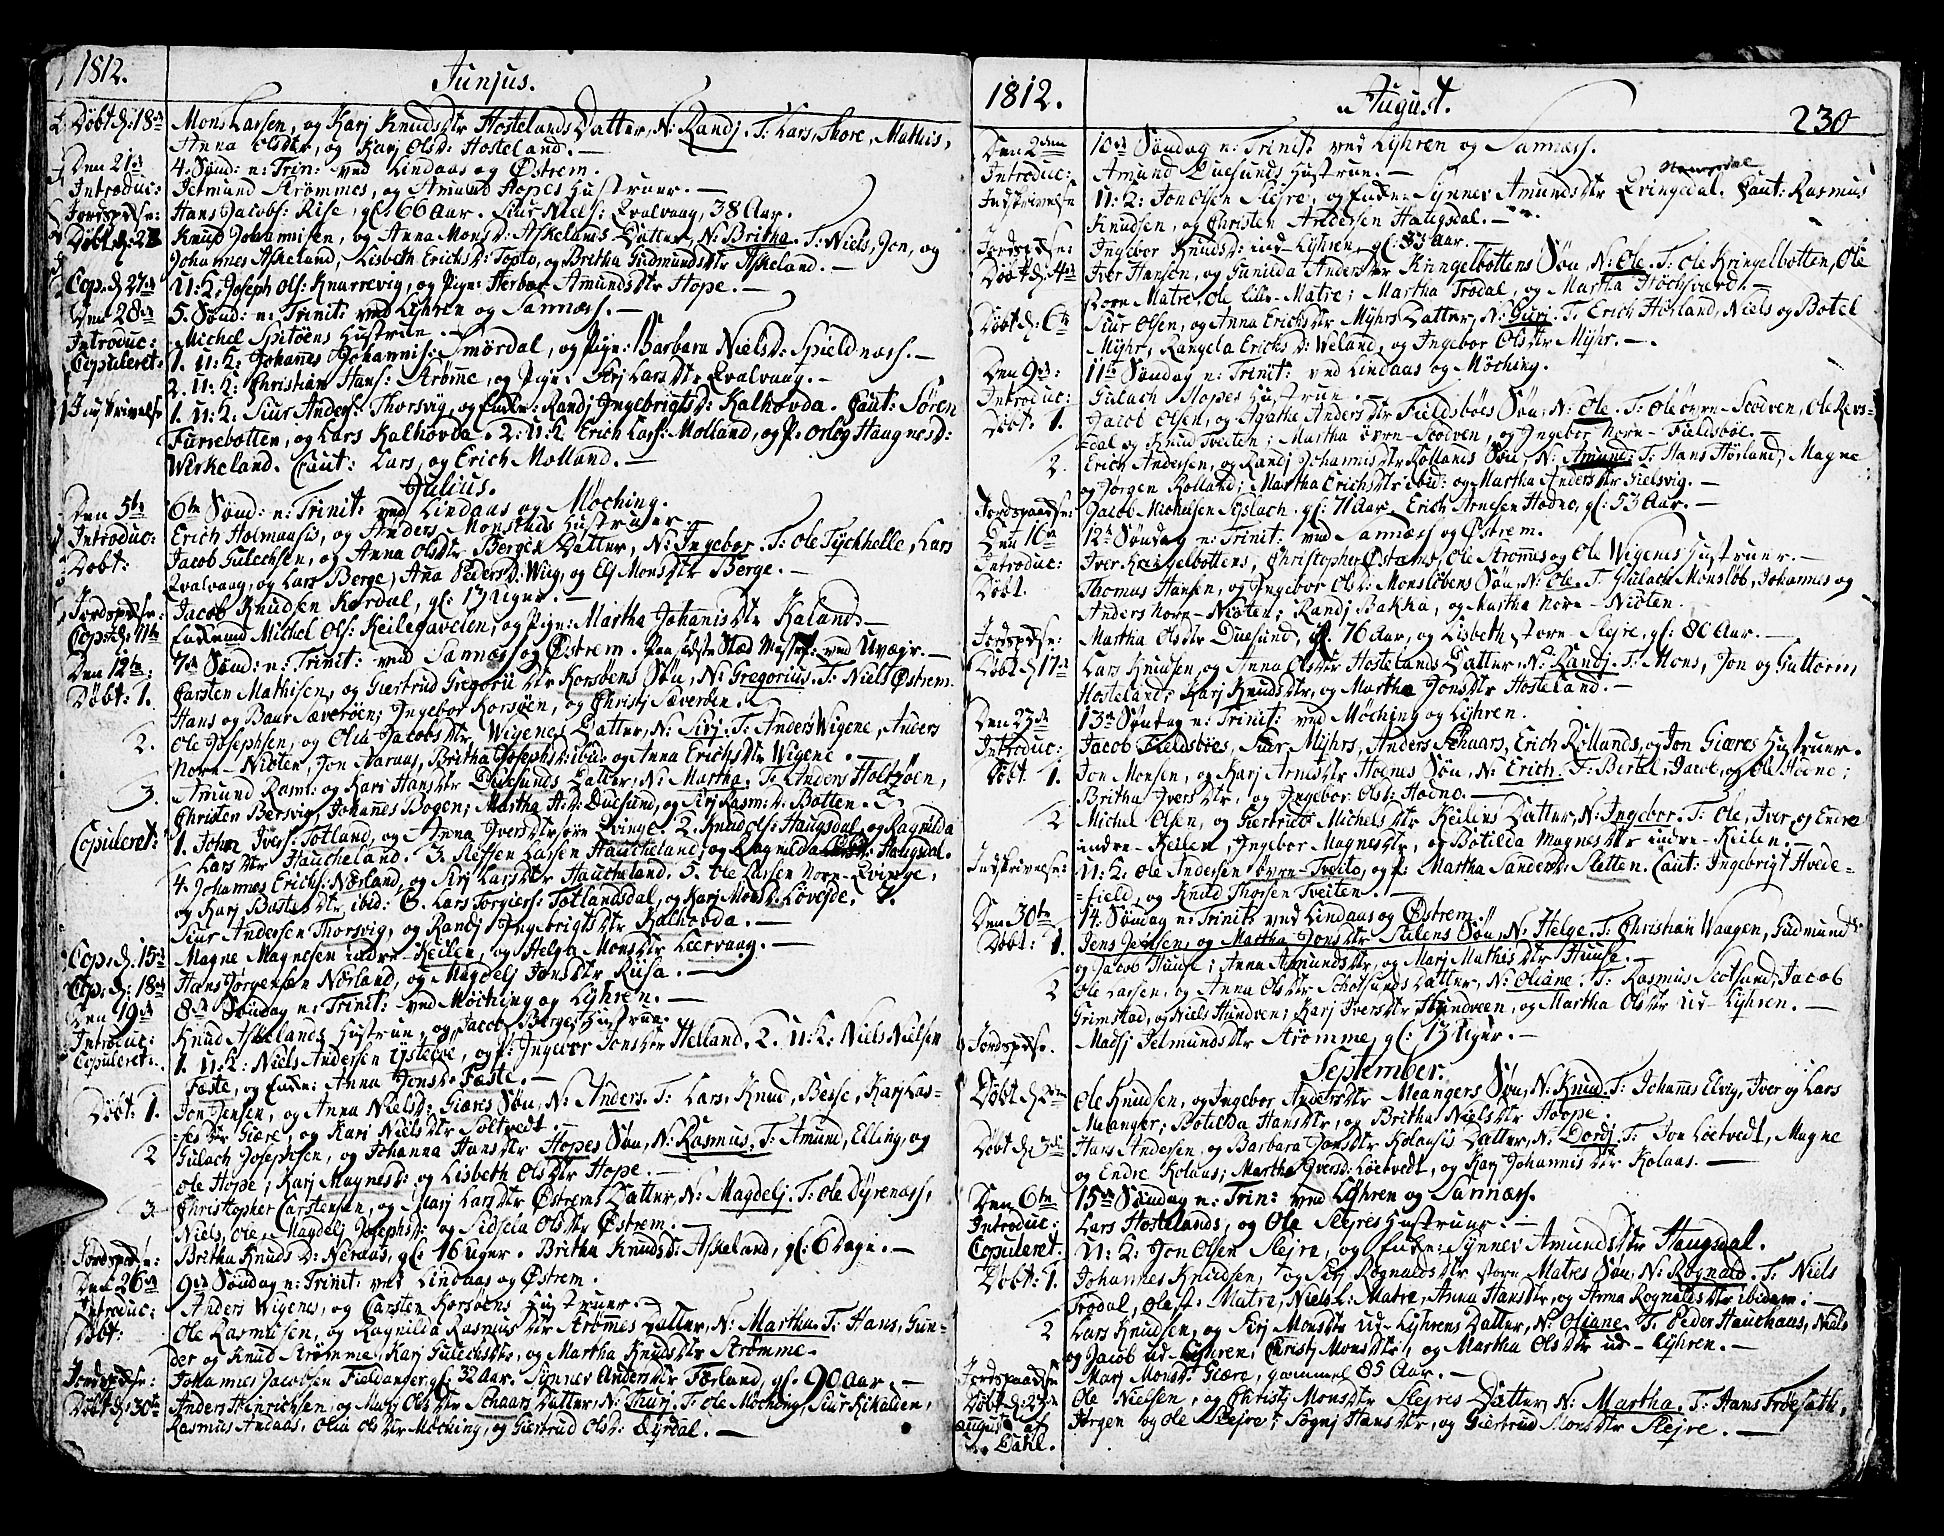 1812.
Junjus.
Døbt d: 18de Mons Larsen, og Karj Knudsdtr Hostelands Datter, N: Randj. T: Lars, Thore, Mathis,
Anna Olsdtr, og Karj Olsd: Hosteland. —
Den 21de 4. Sønd: n: Trin: ved Lindaas og Østrem.
Introduc: Jetmund Strømmes, og Amund Hopes Hustruer. —
Jordspdse: Hans Jacobs: Rise, gl. 66 Aar. Siur Niels: Qvalvaag, 38 Aar.
Døbt d: 2 Knud Johannisen, og Anna Monsd: Askelands Datter, N: Britha. T: Niels, Jon, og
Johannes Askeland, Lisbeth Erichsd: Toplo, og Britha Gudmundsdtr Askeland. —
Cop. d. 27de U: K: Joseph Ols: Knarrevig, og Pige: Herbor Amundsdtr Hope. —
Den 28de 5. Sønd: n: Trinit: ved Lyhren og Sannæss. —
Introduc: Michel Spitøens Hustrue. —
Copuleret: 1. U: K: Johannes Johannis: Smørdal, og Pige: Barbara Nielsd: Spieldnæss. —
2. U: K: Christian Hans: Strømme, og Pige: Sirj Larsdtr Qvalvaag. —
Indskrivelse 1. U: K: Siur Anders: Thorsvig, og Enke: Randj Ingebrigtsd: Kalhovda. Caut: Søren
Fursebotten, og Lars Kalhovda. 2: U: K: Erich Lars: Molland, og P. Orlog Haugnesd:
Wirkeland. Caut: Lars, og Erich Molland. —
Julius.
Den 5te 6te Sønd: n: Trinit: ved Lindaas og Møching.
Introduc: Erich Holmaasis, og Anders Monstads Hustruer. —
Døbt: Jacob Gulechsen, og Anna Olsdtr Berges Datter, N: Ingebor. T: Ole Tyckhelle, Lars
Qvalvaag, og Lars Berge, Ana Pedersd: Wiig, og Els Monsdtr Berge. —
Jordspdse: Jacob Knudsen Kardal, gl: 13 Uger. —
Cop: d: 11te Enkemd Michel Ols: Keilegavelen, og Pige: Martha Johanisdtr Kaland. —
Den 12te: 7de Sønd: n: Trinit: ved Sannæss og Østrem. Paa sidste Stæd Messef: ved Uvæyr. —
Døbt: 1. Carsten Mathisen, og Giertrud Gregorii dtr Korsøens Søn, N: Gregorius. T: Niels Østrem.
Hans og Baar Sæverøen; Ingebor Korsøen, og Christj Sæverøen.
2. Ole Josephsen, og Olia Jacobsdtr Wigenes Datter, N: Sirj. T: Anders Wigene, Anders
Norn-Nioten, Jon Aaraas, Britha Josephsd: ibid: og Anna Erichsdtr Wigene.
3. Amund Rasm: og Kari Hansdtr Duesunds Datter, N: Martha. T: Anders Holtzøen,
Christen Bersvig, Johanes Bogen; Martha H: D: Duesund, og Sirj Rasm: D: Botten.
Copuleret: 1. John Ivers: Totland, og Anna Iversdtr søre Qvinge. 2. Knud Ols: Haugsdal, og Ragnilda
Larsdtr Haucheland. 3. Steffen Larsen Haucheland, og Ragnilda Haugsdal.
4. Johannes Erichs: Nørland, og Sirj Larsdtr Haucheland. 5. Ole Larsen Norn-Qvinge,
og Karj Bastesdtr ibid: 6. Lars Torgiers: Totlandsdal, og Karj Monsd: Løvejde. 7.
Siur Andersen Thorsvig, og Randj Ingebrigtsdtr Kalhovda. —
Cop. d. 15de Magne Magnesen indre-Keilen, og Helga Monsdtr Leervaag. —
Cop. d: 18de Hans Jørgensen Nørland, og Magdelj Jonsdtr Risa. —
Den 19de 8de Søndag n: Trinit: ved Møching og Lyhren. —
Introduc: Knud Askelands Hustrue, og Jacob Berges Hustrue. —
Copuleret: 1. U: K: Niels Andersen Ystebøe, og P: Ingebor Jonsdtr Helland. 2. U: K: Niels Nielsen
Fæste, og Enke: Anna Jonsdr Fæste. —
Døbt: 1. Jon Jensen, og Anna Nielsd: Giæres Søn, N: Anders. T: Lars, Knud, Besse, Karj Las-
-sesdtr Giære, og Kari Nielsdtr Soltvedt. —
2 Gulach Josephsen, og Johanna Hansdtr Hopes Søn, N: Rasmus. T: Amund, Elling, og
Ole Hope; Karj Magnesd: og Lisbeth Olsdtr Hope. —
3. Christopher Carstensen, og Marj Larsdtr Østrems Datter, N: Magdelj. T: Ole Dyrenæss,
Niels, Ole, Magdelj Josephsd: og Sidselia Olsdtr Østrem. —
Jordspdse: Britha Knuds D: Neraas, gl: 16 Uger. Britha Knudsd: Askeland, gl: 6 Dage. —
Den 26de 9de Søndag n: Trinit: ved Lindaas og Østrem. —
Introduc: Anders Wigenes, og Carsten Korsøens Hustruer. —
Døbt: Ole Rasmusen, og Ragnilda Rasmusdtr Strømes Datter, N: Martha. T: Hans, Gun-
der og Knud Strømme, Karj Gulechsdtr, og Martha Knudsdtr Strømme. —
Jordspdse: Johannes Jacobsen Fieldanger, gl: 32 Aar. Synnev Andersdtr Færland, gl. 90 Aar. —
Døbt d: 30te Anders Hinrichsen, og Marj Olsdtr Schaars Datter, N: Thurj. T: Ole Møching, Siur Kikalien,
Rasmus Andaas, Olia Olsdtr Møching, og Giertrud Olsd: Qvrdal. —
1812.
August.
230
Den 2den 10de Søndag n: Trinit: ved Lyhren og Sannæss.
Introduc: Amund Duesunds Hustrue. —
Indskrivelse U: K: Jon Olsen Slejre, og Enke: Synnev Amundsdtr Qvingedal. Caut: Rasmus
Knudsen, og Christen Andersen Haugsdal. —
Jordspdse: Ingebor Knudsd: ind-Lyhren, gl: 33 Aar.
Døbt d: 4de Iver Hansen, og Gunilda Andersdtr Kringelbottens Søn, N: Ole. T: Ole Kringelbotten, Ole
Norn Matre, Ole lille-Matre; Martha Trodal, og Martha Hochsvædt. —
Døbt d: 6te Siur Olsen, og Anna Erichsdtr Myhrs Datter, N: Gurj. T: Erich Hosland, Niels og Botel
Myhr, Rangela Erichsd: Weland, og Ingebor Olsdtr Myhr. —
Den 9de: 11te Søndag n: Trinit: ved Lindaas og Møching.
Introduc: Gulach Hopes Hustrue. —
Døbt: 1. Jacob Olsen, og Agathe Andersdtr Fieldsbøes Søn, N: Ole. T: Ole øvre-Scodven, Ole Revs-
-dal og Knud Tveiten; Martha øvre-Scodven, og Ingebor Norn-Fieldsbøe. —
2. Erich Andersen, og Randj Johannisdtr Rollands Søn, N: Amund: T: Hans Høsland, Magne
og Jørgen Rolland; Martha Erichsdtr ibid: og Martha Andersdtr Gielsvig. —
Jordspaadse: Jacob Michelsen Syslach, gl: 71 Aar. Erich Arnesen Hodne, gl: 53 Aar. —
Den 16de 12te Søndag n: Trinit: ved Sannæss og Østrem.
Introduc: Iver Kringelbottens, Christopher Østrems, Ole Strømes og Ole Wigenes Hustruer. —
Døbt. Thomas Hansen, og Ingebor Olsd: Monsløbens Søn, N: Ole. T: Gulach Monsløb, Johannes og
Anders Norn-Nioten; Randj Bakka, og Martha Norn-Nioten.
Jordspdse: Martha Olsdtr Duesund, gl. 76 Aar, og Lisbeth storn-Slejre, gl: 80 Aar. —
Døbt d. 17de Lars Knudsen, og Anna Olsdtr Hostelands Datter, N: Randj. T: Mons, Jon og Guttorm,
Hosteland: Karj Knudsdtr, og Martha Jonsdtr Hosteland. —
Den 23de 13de Søndag n: Trinit: ved Møching og Lyhren.
Introduc: Jacob Fieldsbøes, Siur Myhrs, Anders Schaars, Erich Rollands, og Jon Giæres Hustruer.
Døbt 1. Jon Monsen, og Karj Arnesdtr Hodnes Søn, N: Erich. T: Bertel, Jacob, og Ole Hodne;
Britha Iversdtr, og Ingebor Olsd: Hodne. —
2 Michel Olsen, og Giertrud Michelsdtr Keilens Datter, N: Ingebor. T: Ole, Iver og Endre
indre-Keilen, Ingebor Magnesdtr, og Botilda Magnesdtr indre-Keilen. —
Indskrivelse: U: K: Ole Andersen søvre-Tveito, og P: Martha Sandersd: Sletten. Caut: Ingebrigt Hvede-
-field, og Knud Thorsen Tveiten. —
Den 30te 14. Søndag n: Trinit: ved Lindaas og Østrem.
Døbt: 1. Jens Jensen, og Martha Jonsdtr Sulens Søn, N: Helge. T: Christian Waagen, Gudmund
og Jacob Huuse; Anna Amundsdtr, og Marj Mathisdtr Huuse. —
2 Ole Larsen, og Anna Olsdtr Schotsunds Datter, N: Oliane. T: Rasmus Scotsund, Jacob
Grimstad, og Niels Hundven; Karj Iversdtr Hundveen, og Martha Olsdtr ud-Lyhren. —
Jordspdse. Madsj Jetmundsdtr Strømme, gl: 13 Uger. —
September.
Døbt d: 2den Ole Knudsen, og Ingebor Andersdtr Meangers Søn, N: Knud. T: Johannes Elvig, Iver og Lars
Meanger; Botilda Hansdtr, og Britha Nielsdtr Hoope.
Døbt d. 3de Hans Andersen, og Barbara Jonsdtr Kolaasis Datter, N: Dordj. T: Jon Løetvedt, Magne
og Endre Kolaas; Martha Iversd: Løetvedt, og Karj Johannisdtr Kolaas. —
Den 6te 15de Søndag n: Trin: ved Lyhren og Sannæss.
Introduc: Lars Hostelands, og Ole Slejres Hustruer. —
Copuleret. U: K: Jon Olsen Slejre, og Enke: Synnev Amundsdtr Haugsdal.
Døbt: 1. Johannes Knudsen, og Sirj Rognaldsdtr storn Matres Søn, N: Rognald. T: Niels
Trodal, Ole st: Matre, Niels l: Matre, Anna Hansdtr, og Anna Rognaldsdtr ibidem: —
2 Lars Knudsen, og Sirj Monsdtr ud-Lyhrens Datter, N: Oliane. T: Peder Hauchaas, Niels
og Jacob ud-Lyhren; Christj Monsdtr, og Martha Olsdtr ud-Lyhren. —
Jordspaadse Marj Monsd: Giære, gammel 85 Aar. —
Døbt d: 23de Ole Nielsen, og Christj Monsdtr Slejres Datter, N: Martha. T: Hans Frøesæth,
August af Jørgen og Ole Slejre; Sognj Hansdtr, og Giertrud Monsdtr Slejre. —
Dahl.